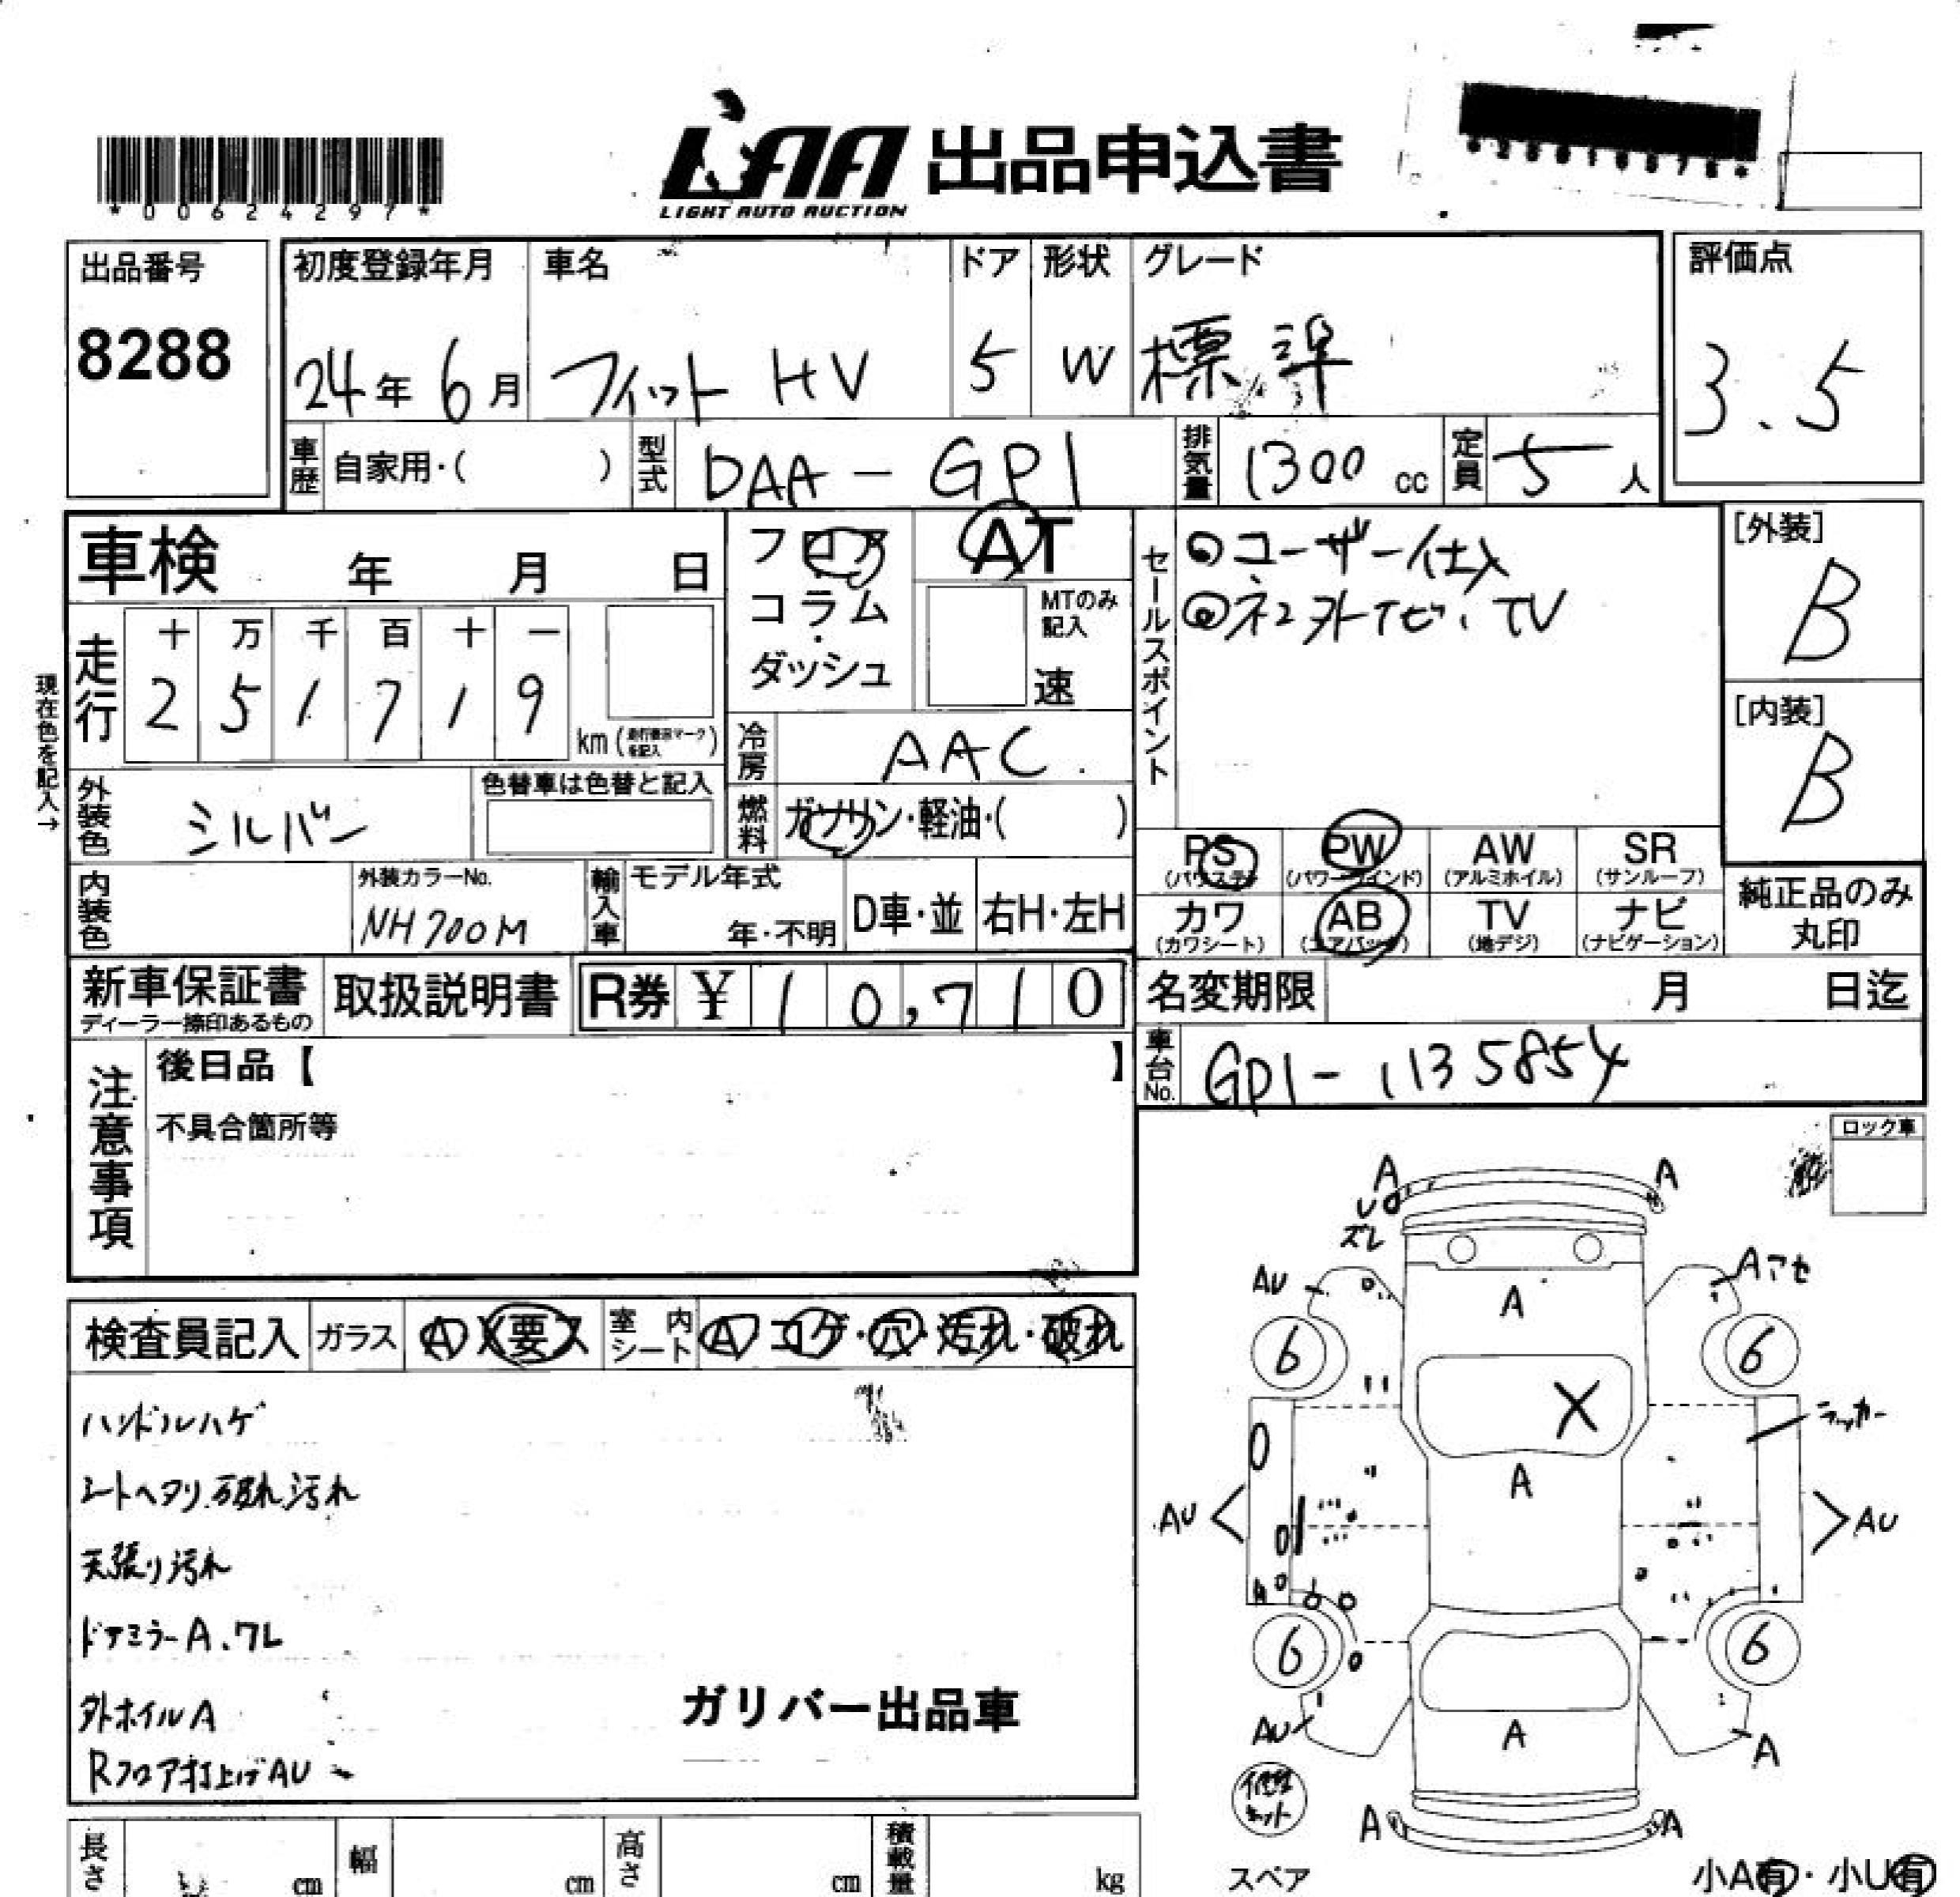 LAA 出品申込書
LIGHT AUTO AUCTION
*00624297*
出品番号
8288
初度登録年月
24年 6月
車名
フィット HV
ドア
5
形状
W
グレード
標準
評価点
3.5
車歴 自家用・( )
型式 DAA-GP1
排気量 1300 cc
定員 5 人
車検 年 月 日
フロア
コラム
ダッシュ
AT
MTのみ
記入
速
セールスポイント
◎ユーザー仕入
[外装]
B
[内装]
B
走行
十 万 千 百 十 一
2 5 1 7 1 9
km
現在色を記入→
冷房 AAC
外装色 シルバー
色替車は色替と記入
燃料 ガソリン・軽油・( )
PS PW AW SR
(パワステ) (パワーウインド) (アルミホイル) (サンルーフ)
カワ AB TV ナビ
(カワシート) (エアバック) (地デジ) (ナビゲーション)
純正品のみ
丸印
内装色
外装カラーNo.
NH700M
輸入車
モデル年式
年・不明
D車・並
右H・左H
新車保証書
ディーラー捺印あるもの
取扱説明書
R券 ¥ 10,710
名変期限 月 日迄
車台No. GP1-1135854
注意事項
後日品【 】
不具合箇所等
ロック車
検査員記入
ガラス A X 要ス
室内シート A コゲ・穴・汚れ・破れ
ハンドルハゲ
シートヘタリ.破れ汚れ
天張り汚れ
ドアミラーA.ワレ
外ホイルA
Rフロア打上げAU
ガリバー出品車
A A
U
ズレ
AU Aアセ
A
6 6
X
ラッカー
A
AU AU
6 6
AU A
A
修理キット
A A
スペア
小A有・小U有
長さ cm
幅 cm
高さ cm
積載量 kg